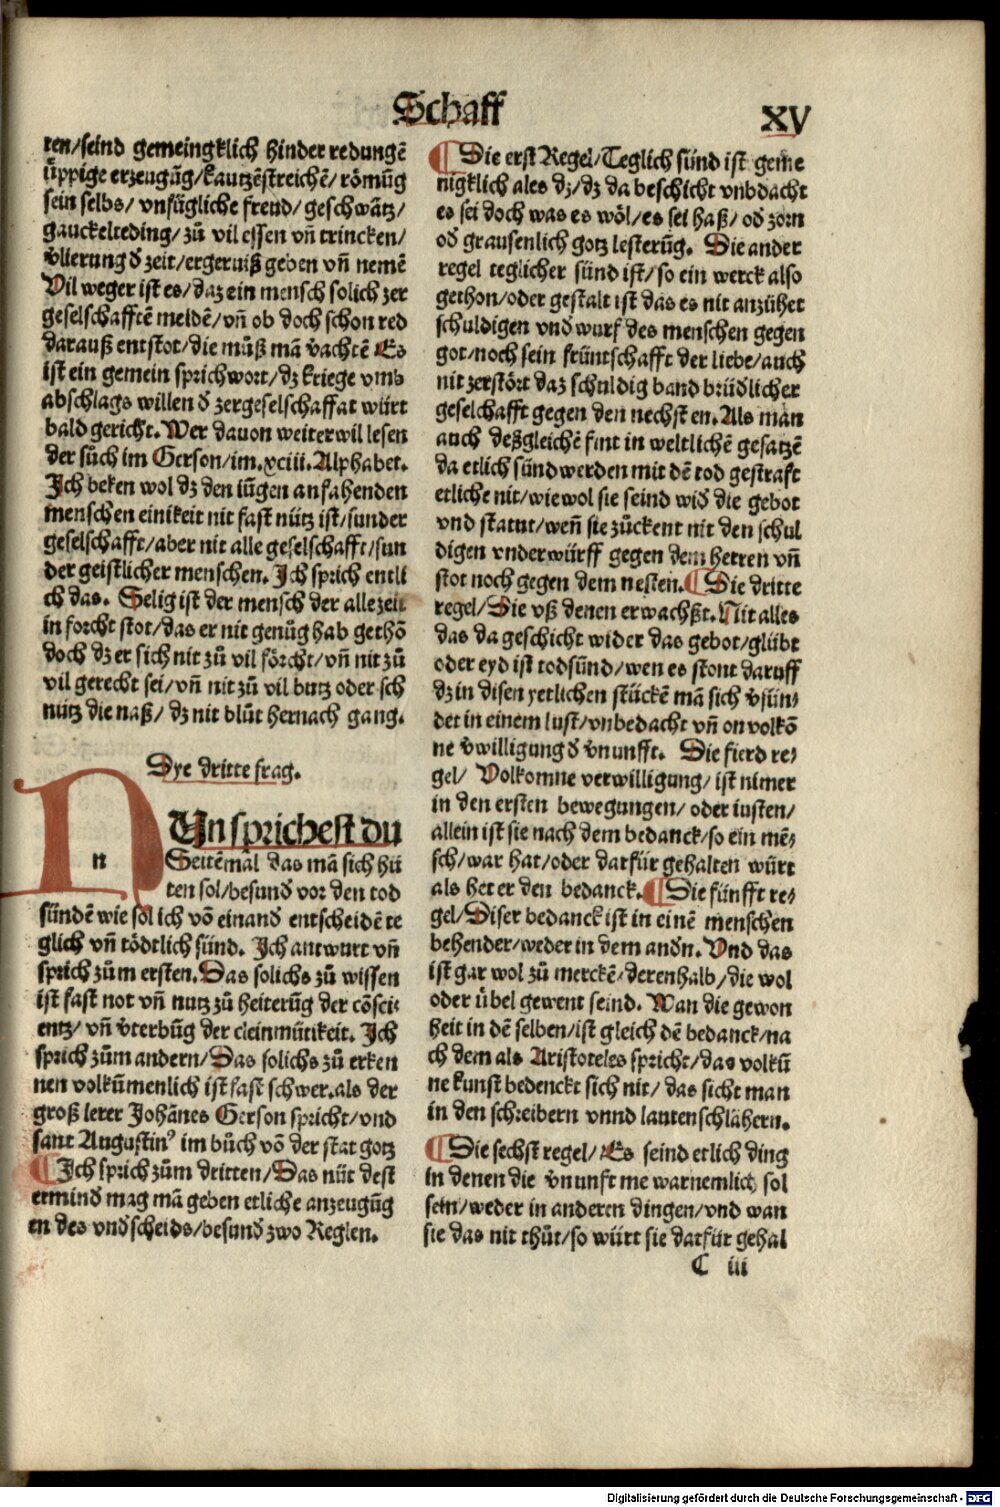 Schaff
XV
ren/seind gemeingklich hinder redungē
üppige erzeugūg/kautzēstreichē/römūg
sein selbs/vnfügliche freud/geschwätz/
gauckelteding/zů vil essen vñ trincken/
v̄lierung d̄ zeit/ergerniß geben vñ nemē
Vil weger ist es/daz ein mensch solich zer
geselschafftē meidē/vñ ob doch schon red
darauß entstot/die můß mā v̄achtē Es
ist ein gemein sprichwort/dz kriege vmb
abschlags willen d̄ zergeselschaffat würt
bald gericht. Wer dauon weiter wil lesen
der sůch im Gerson/im.xciii.Alphabet.
Ich beken wol dz den iūgen anfahenden
menschen einikeit nit fast nütz ist/sunder
geselschafft/aber nit alle geselschafft/sun
der geistlicher menschen. Ich sprich entli
ch das. Selig ist der mensch der alle zeit
in forcht stot/das er nit genůg hab gethō
doch dz er sich nit zů vil förcht/vñ nit zů
vil gerecht sei/vñ nit zů vil butz oder sch
nütz die naß/dz nit blůt hernach gang.
Dye dritte frag.
n
NUn sprichest du
Seitēmal das mā sich hü
ten sol/besund̄ vor den tod
sündē wie sol ich vō einand̄ entscheidē te
glich vñ tödtlich sünd. Ich antwurt vñ
sprich zům ersten. Das solichs zů wissen
ist fast not vñ nutz zů heiterūg der cōsci
entz/vñ v̄terbūg der cleinmütikeit. Ich
sprich zům andern/Das solichs zů erken
nen volkūmenlich ist fast schwer.als der
groß lerer Johānes Gerson spricht/vnd
sant Augustin⁹ im bůch vō der stat gotz
¶Ich sprich zům dritten/Das nüt dest
ermind̄ mag mā geben etliche anzeugūg
en des vnd̄scheids/besund̄ zwo Reglen.
¶Die erst Regel/Teglich sünd ist geme
nigklich ales dz/dz da beschicht vnbdacht
es sei doch was es wöl/es sei haß/od̄ zorn
od̄ grausenlich gotz lesterūg. Die ander
regel teglicher sünd ist/so ein werck also
gethon/oder gestalt ist das es nit anzühet
schuldigen vnd wurf des menschen gegen
got/noch sein früntschafft der liebe/auch
nit zerstört daz schuldig band brüdlicher
geselchafft gegen den nechsten. Als man
auch deßgleichē fint in weltlichē gesatzē
da etlich sünd werden mit dē tod gestraft
etliche nit/wie wol sie seind wid̄ die gebot
vnd statut/weñ sie zůckent nit den schul
digen vnderwürff gegen dem herren vñ
stot noch gegen dem nesten. ¶Die dritte
regel/Die vß denen erwachßt. Nit alles
das da geschicht wider das gebot/glübt
oder eyd ist todsünd/wen es stont daruff
dz in disen yetlichen stückē mā sich v̄sün⸗
det in einem lust/vnbedacht vñ on volkō
ne v̄willigung d̄ v̄nunfft. Die fierd re⸗
gel/ Volkomne verwilligung/ist nimer
in den ersten bewegungen/oder lusten/
allein ist sie nach dem bedanck/so ein mē⸗
sch/war hat/oder darfür gehalten würt
als het er den bedanck. ¶Die fünfft re⸗
gel/Diser bedanck ist in einē menschen
behender/weder in dem and̄n. Vnd das
ist gar wol zů merckē/derenhalb/die wol
oder übel gewent seind. Wan die gewon
heit in dē selben/ist gleich dē bedanck/na
ch dem als Aristoteles spricht/das volkū
ne kunst bedenckt sich nit/das sicht man
in den schreibern vnnd lautenschlahern.
¶Die sechst regel/Es seind etlich ding
in denen die v̄nunft me warnemlich sol
sein/weder in anderen dingen/vnd wan
sie das nit thůt/so würt sie darfür gehal
C iii
Digitalisierung gefördert durch die Deutsche Forschungsgemeinschaft - DFG